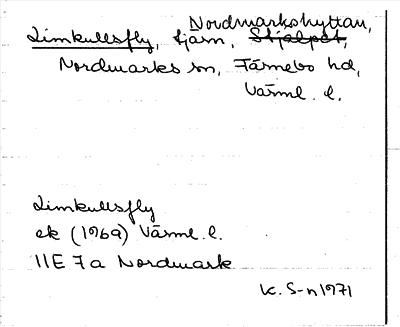 Nordmarkshyttan,
Limkullsfly, tjärn, Stjälpet,
Nordmarks sn, Färnebo hd,
Värml. l.
Limkullsfly
ek (1969) Värml. l.
11E 7a Nordmark
K. S-n 1971